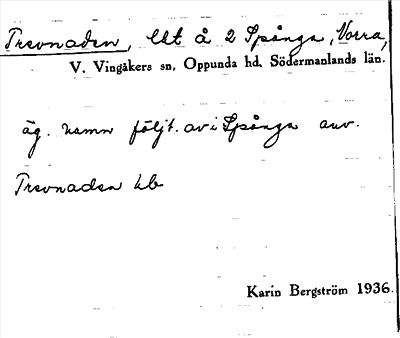 Trevnaden, lht å 2 Spånga, Norra,
V. Vingåkers sn, Oppunda hd, Södermanlands län.
äg. namn följt. av i Spånga anv.
Trevnaden hb
Karin Bergström 1936.